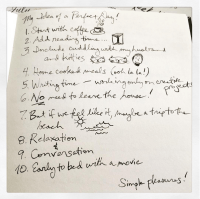 My Idea of a Perfect Day!
1. Start with coffee
2. Add reading time...
3. Include cuddling with my husband
and kitties
4. Home cooked meals (ooh la la!)
5. Writing time - working only on creative
projects
6. No need to leave the house!
7. But if we feel like it, maybe a trip to the
beach
8. Relaxation
&
9. Conversation
10. Early to bed with a movie
Simple pleasures!